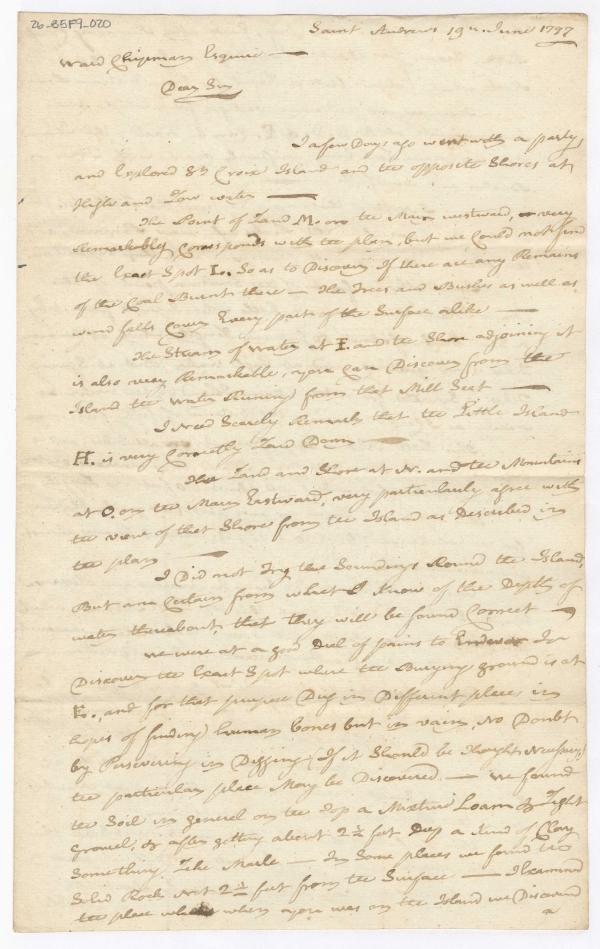 26-85F9-020
Saint Andrews 19th June 1797
Ward Chipman Esquire —
Dear Sir
I a few Days ago went with a party
and Explored St Croix Island and the opposite Shores at
High and Low water —
The Point of Land M. on the Main westward, very
Remarkably Corresponds with the plan, but we Could not find
the Exact Spot L. So as to Discover If there are any Remains
of the Coal Burnt there — the Trees and Bushes as well as
wind falls Cover Every part of the Surface alike —
The Stream of Water at F. and the Shore adjoining it
is also very Remarkable, you Can Discover from the
Island the Water Runing from that Mill Seat —
I Need Scarcly Remark that the Little Island
H. is very Correctly Laid Down —
The Land and Shore at N. and the Mountains
at O. on the Main Eastward, very particularly agree with
the view of that Shore from the Island as Described in
the plan —
I Did not Try the Soundings Round the Island,
But am Certain from what I Know of the Depth of
water thereabout, that they will be found Correct —
we were at a good Deel of pains to
Discover the Exact Spot where the Burying ground is at
E., and for that purpose Dug in Different places in
hopes of finding human bones but in vain, No Doubt
by Persevering in Digging (If it Should be thought Necessary)
the particular place May be Discovered — we found
the Soil in general on the Top a Mixture Loam & Light
gravel, & after getting about 2½ feet Deep a kind of Clay
Something Like Marle — In Some places we found the
Solid Rock Not 2½ feet from the Surface — I Examined
the place when you was on the Island we Discovered
a